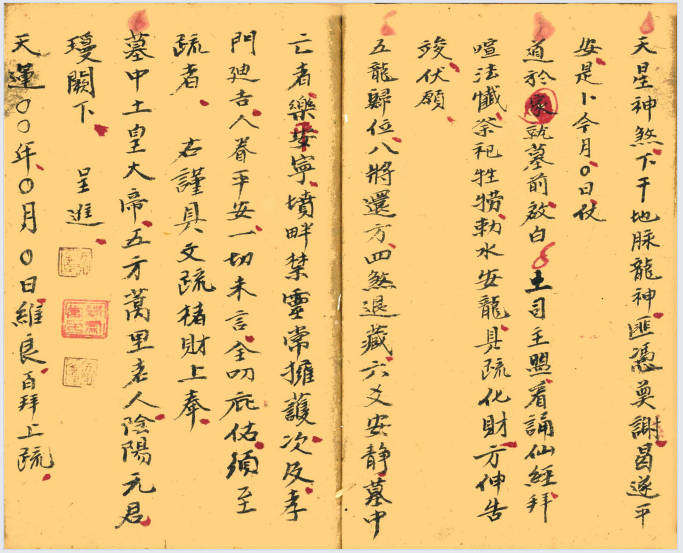 天星神煞下干地脉龍神匪憑奠謝曷遂平
安是卜今月〇日仗
道於家就墓前啟白土司主盟看誦仙經拜
喧法懺祭祀牲撈勅水安龍具疏化財方伸告
竣伏願
五龍歸位八將還方四煞退藏六爻安靜墓中
亡者樂安寧墳畔禁靈常擁護次及孝
門廸吉人眷平安一切未言全叨庇佑須至
疏者 右謹具文疏楮財上奉
墓中土皇大帝五方萬里老人陰陽元君
瓊闕下 呈進
天運〇〇年〇月〇日維良百拜上疏